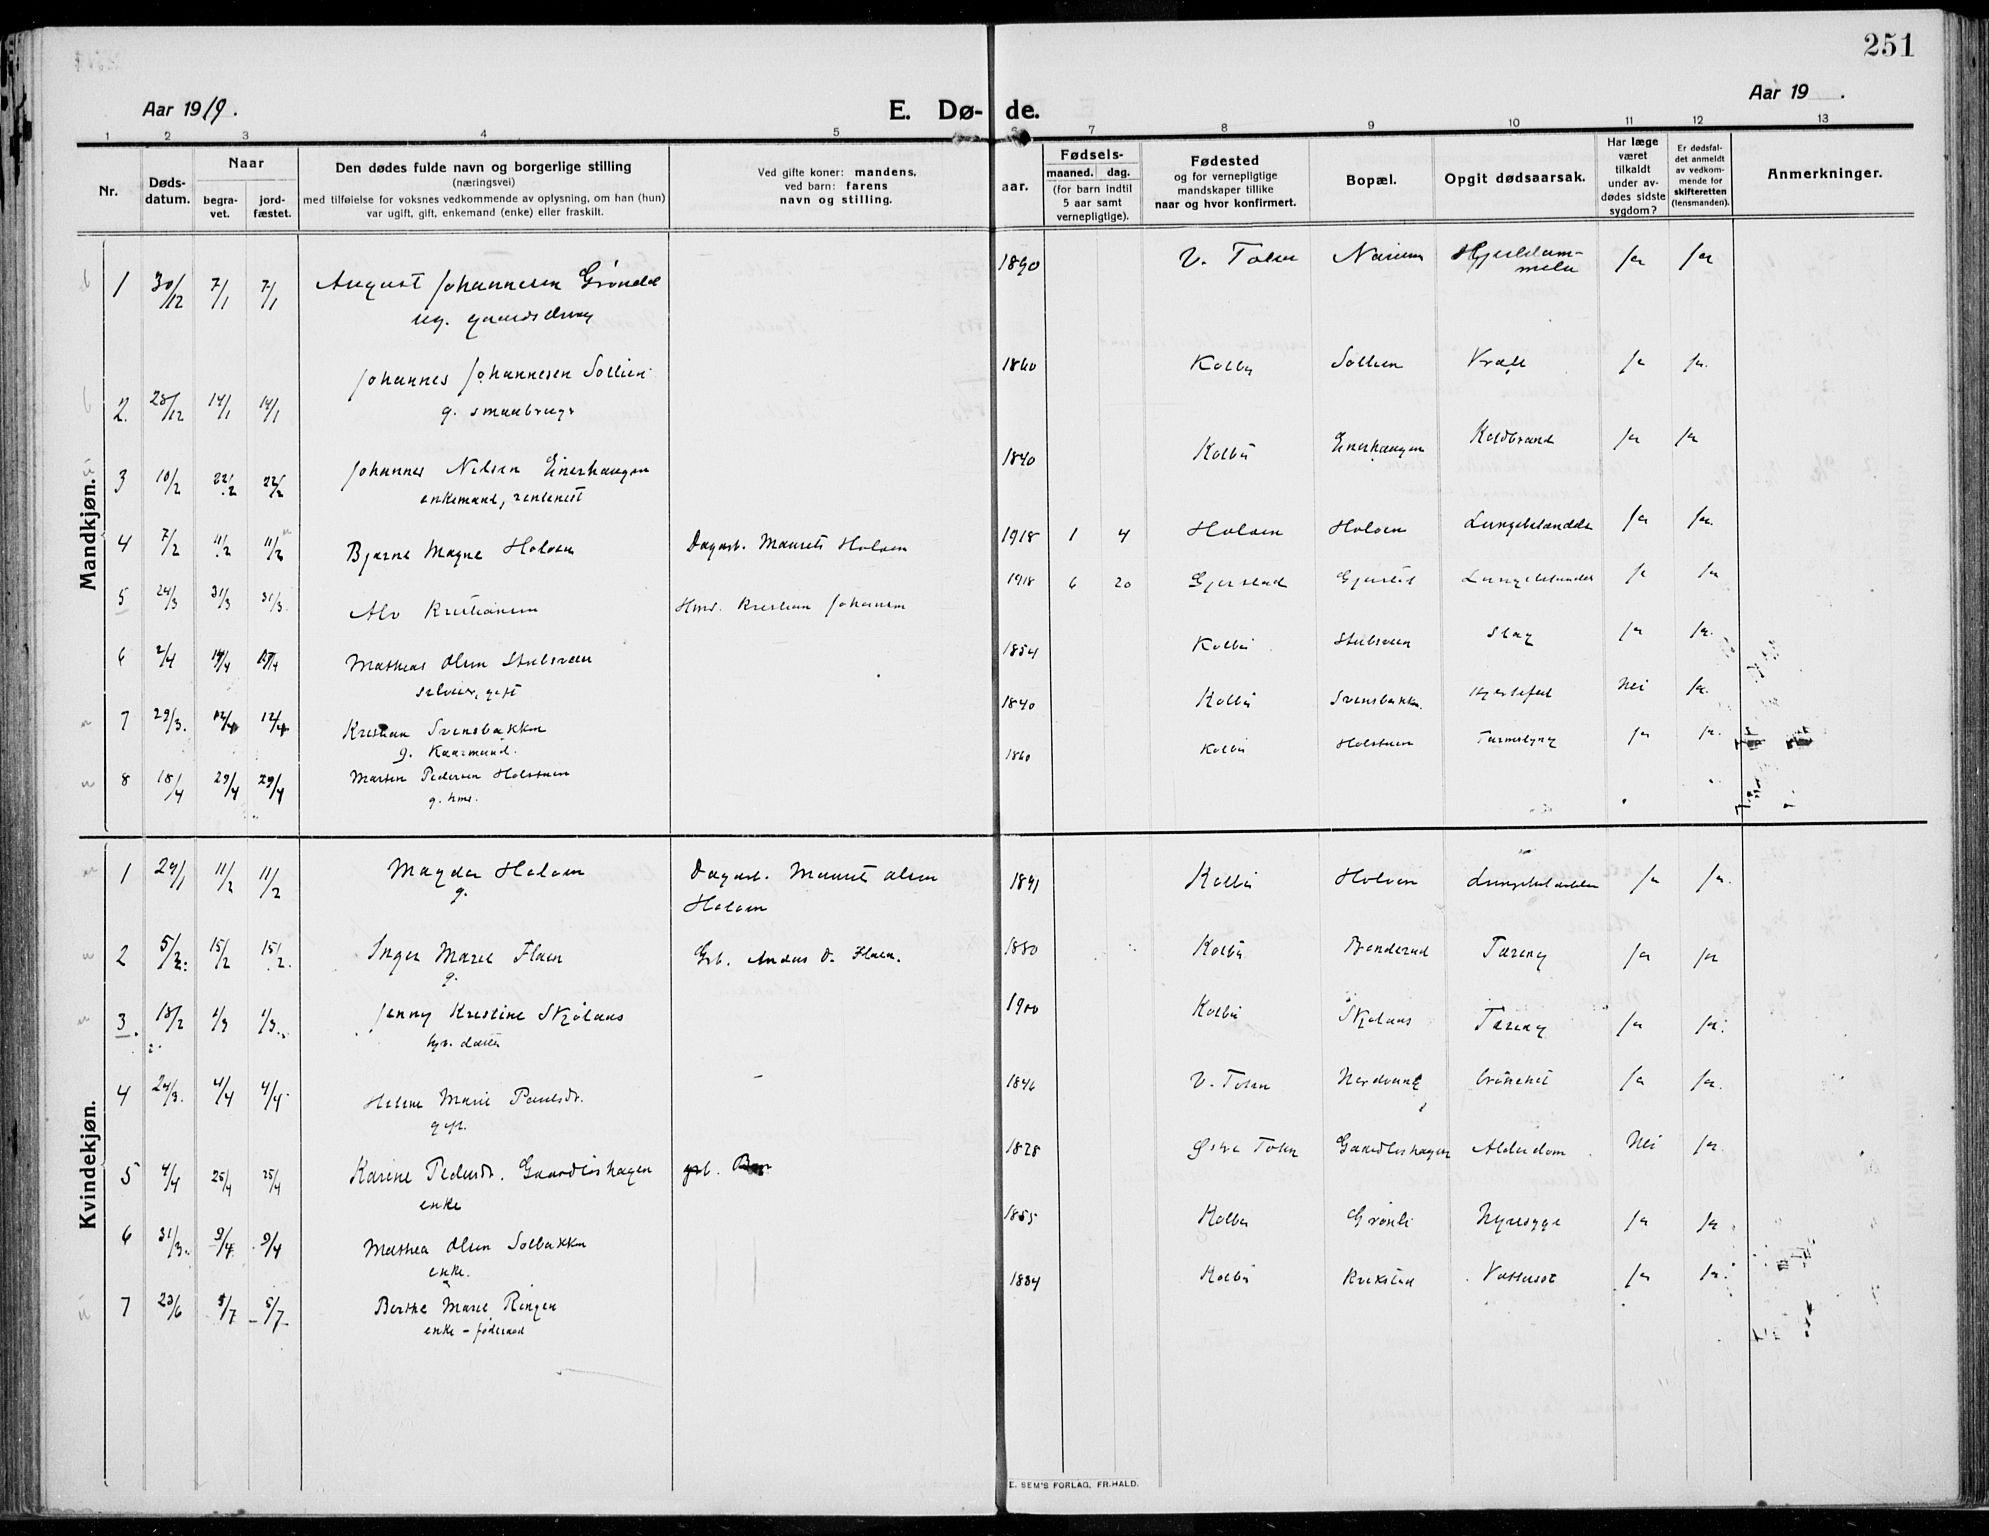 251
Aar 1919.
E. Dø-de.
Aar 19 .
1 2 3 4 5 6 7 8 9 10 11 12 13
Nr.
Døds-
datum.
Naar
begra-
vet.
jord-
fæstet.
Den dødes fulde navn og borgerlige stilling
(næringsvei)
med tilføielse for voksnes vedkommende av oplysning, om han (hun)
var ugift, gift, enkemand (enke) eller fraskilt.
Ved gifte koner: mandens,
ved barn: farens
navn og stilling.
aar.
Fødsels-
maaned. dag.
(for barn indtil
5 aar samt
vernepligtige).
Fødested
og for vernepligtige
mandskaper tillike
naar og hvor konfirmert.
Bopæl.
Opgit dødsaarsak.
Har læge
været
tilkaldt
under av-
dødes sidste
sygdom?
Er dødsfal-
det anmeldt
av vedkom-
mende for
skifteretten
(lensmanden).
Anmerkninger.
Mandkjøn.
1 30/12 7/1 7/1 August Johannesen Grøndal 1890 V. Toten Hjernehindebetændelse ja ja
ug.
2. 28/12 14/1 14/1 Johannes Johannesen Sollien 1860 Kolbu Sollien Kræft ja ja.
g. smaabruger
3 10/2 22/2 22/2 Johannes Nilsen Einerhaugen 1840 Kolbu Einerhaugen Koldbrand ja ja
enkemand, rentenist
4 7/2 11/2 11/2 Bjarne Magne Holoen Dagarb. Maurits Holoen 1918 1 4 Holoen Holoen Lungebetændelse ja ja.
5 24/3 31/3 31/3. Alv Kristiansen Hmd. Kristian Johansen 1918 6 20 Gjerstad Gjerstad Lungebetændelse ja ja
6 2/4 14/4 Mathias Olsen Stubsveen 1854 Kolbu Stubsveen Slag ja ja.
selveier, gift
7 29/3. 12/4 12/4 Kristian Svensbakken 1840 Kolbu Svensbakken. Hjertefeil Nei ja.
g. Kaarmand.
8 18/4 29/4 29/4 Martin Pedersen Holstuen 1860 Kolbu Holstuen ja ja.
g. hmd.
Kvindekjøn.
1 29/1 11/2 11/2 Magda Holoen Dagarb. Maurits Olsen 1891 Kolbu Holoen Lungebetændelse ja ja.
g. Holoen
2 5/2. 15/2 15/2. Inger Marie Flaen Grb. Anders O. Flaen. 1880 Kolbu Bønderud Tæring ja ja
g.
3. 18/2 1/3 1/3. Jenny Kristine Skjølaas 1900 Kolbu Skjølaas Tæring ja ja.
gb. datter
4 24/3. 4/4 4/4. Helene Marie Paulsdr. 1846 V. Toten Nordvang bronchit ja ja.
gift.
5 4/4 25/4 25/4 Karine Pedersdr. Gaardløshagen grb. 1828 Østre Toten Gaardløshagen Alderdom Nei ja.
enke
6 31/3. 9/4 9/4 Mathea Olsen Solbakken 1855 Kolbu Grønli Nyresyge ja ja
enke.
7 23/6 5/7 5/7 Berthe Marie Ringen 1834 Kolbu Krikstad Vattersot ja ja.
enke - føderaad
E. SEM'S FORLAG, FR.HALD.